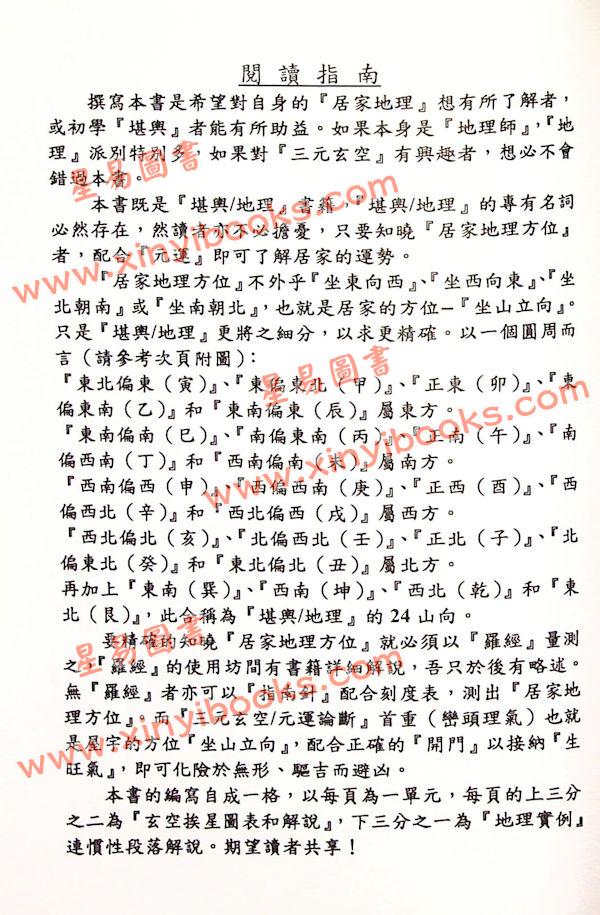 閱讀指南
撰寫本書是希望對自身的『居家地理』想有所了解者，
或初學『堪輿』者能有所助益。如果本身是『地理師』，『地
理』派別特別多，如果對『三元玄空』有興趣者，想必不會
錯過本書。
本書既是『堪輿/地理』書籍，『堪輿/地理』的專有名詞
必然存在，然讀者亦不必擔憂，只要知曉『居家地理方位』
者，配合『元運』即可了解居家的運勢。
『居家地理方位』不外乎『坐東向西』、『坐西向東』、『坐
北朝南』或『坐南朝北』，也就是居家的方位—『坐山立向』。
只是『堪輿/地理』更將之細分，以求更精確。以一個圓周而
言（請參考次頁附圖）：
『東北偏東（寅）』、『東偏東北（甲）』、『正東（卯）』、『東
偏東南（乙）』和『東南偏東（辰）』屬東方。
『東南偏南（巳）』、『南偏東南（丙）』、『正南（午）』、『南
偏西南（丁）』和『西南偏南（未）』屬南方。
『西南偏西（申）』、『西偏西南（庚）』、『正西（酉）』、『西
偏西北（辛）』和『西北偏西（戌）』屬西方。
『西北偏北（亥）』、『北偏西北（壬）』、『正北（子）』、『北
偏東北（癸）』和『東北偏北（丑）』屬北方。
再加上『東南（巽）』、『西南（坤）』、『西北（乾）』和『東
北（艮）』，此合稱為『堪輿/地理』的24山向。
要精確的知曉『居家地理方位』就必須以『羅經』量測
之，『羅經』的使用坊間有書籍詳細解說，吾只於後有略述。
無『羅經』者亦可以『指南針』配合刻度表，測出『居家地
理方位』。而『三元玄空/元運論斷』首重（巒頭理氣）也就
是屋宇的方位『坐山立向』，配合正確的『開門』以接納『生
旺氣』，即可化險於無形、驅吉而避凶。
本書的編寫自成一格，以每頁為一單元，每頁的上三分
之二為『玄空挨星圖表和解說』，下三分之一為『地理實例』
連慣性段落解說。期望讀者共享！
星易圖書
www.xinyibooks.com
星易圖書
www.xinyibooks.com
星易圖書
www.xinyibooks.com